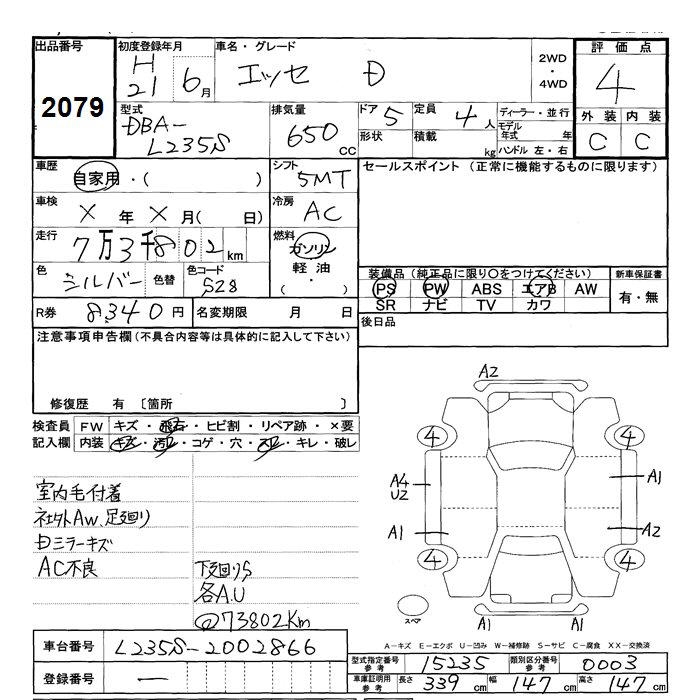 出品番号
2079
初度登録年月
H
21 6月
車名・グレード
エッセ D
2WD
・
4WD
評価点
4
外装 内装
C C
型式
DBA-
L235S
排気量
650
CC
ドア 5
形状
定員 4人
積載 kg
ディーラー・並行
モデル
年式 年
ハンドル 左・右
車歴
自家用・( )
シフト
5MT
車検
X年X月( 日)
冷房
AC
走行
7万3千802km
燃料
ガソリン
軽油
( ・ )
色
シルバー
色替
色コード
S28
R券 8340円
名変期限 月 日
セールスポイント (正常に機能するものに限ります)
装備品 (純正品に限り○をつけてください)
PS PW ABS エアB AW
SR ナビ TV カワ
新車保証書
有・無
後日品
注意事項申告欄(不具合内容等は具体的に記入して下さい)
修復歴 有 〔箇所 〕
検査員
記入欄
FW キズ・飛石・ヒビ割・リペア跡・×要
内装 キズ・汚れ・コゲ・穴・スレ・キレ・破レ
室内毛付着
社外Aw、足廻り
ミラーキズ
AC不良
下廻りS
各A.U
@73802Km
A2
4
4
A4
U2
A1
A1
A2
4
4
A1
A1
スペア
車台番号 L235S-2002866
登録番号 —
A-キズ E-エクボ U-凹み W-補修跡 S-サビ C-腐食 XX-交換済
型式指定番号
参考
15235
類別区分番号
参考
0003
車庫証明用
参考
長さ 339cm 幅 147cm 高さ 147cm